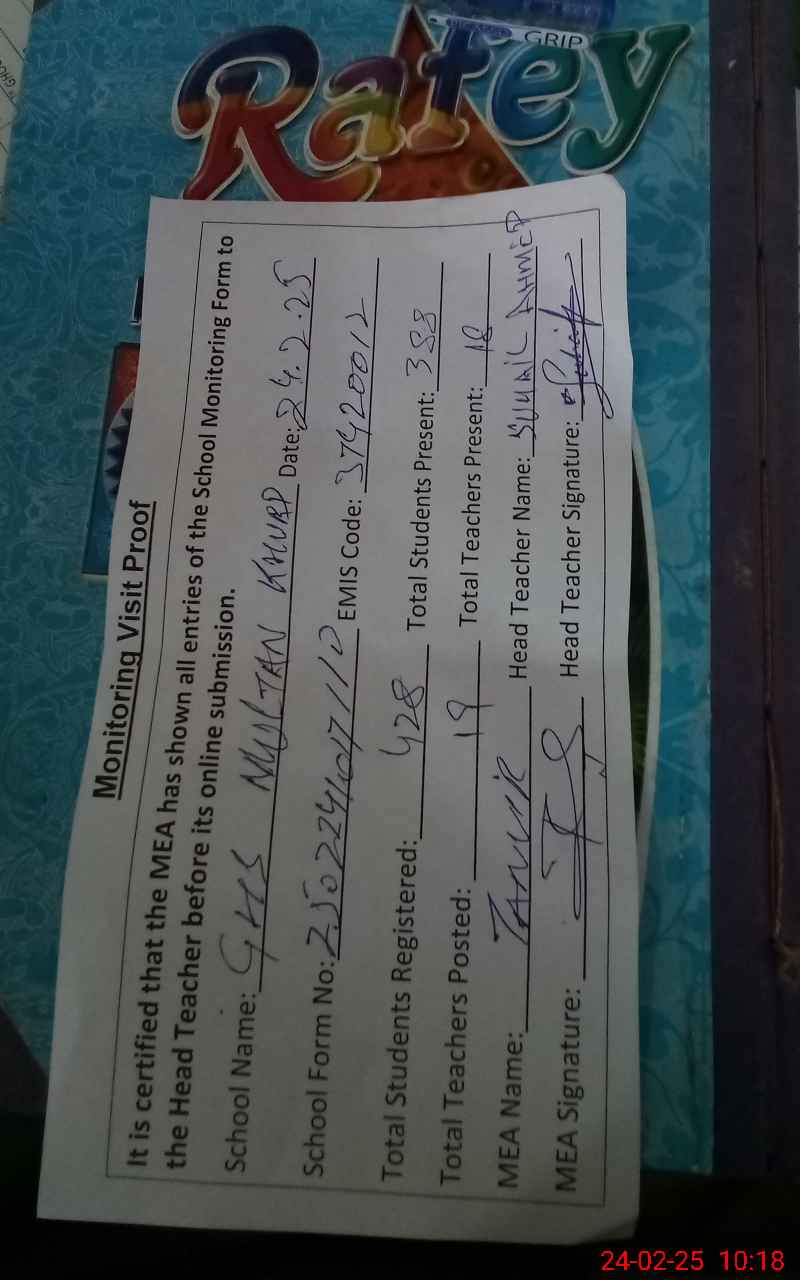 GRIP
Rafey
Monitoring Visit Proof
It is certified that the MEA has shown all entries of the School Monitoring Form to
the Head Teacher before its online submission.
School Name: GHS KHURD Date: 24.2.25
School Form No: EMIS Code: 37420012
Total Students Registered: 428 Total Students Present: 388
Total Teachers Posted: 19 Total Teachers Present: 18
MEA Name: TANVIR Head Teacher Name: SUHAIL AHMED
MEA Signature: Head Teacher Signature:
24-02-25 10:18